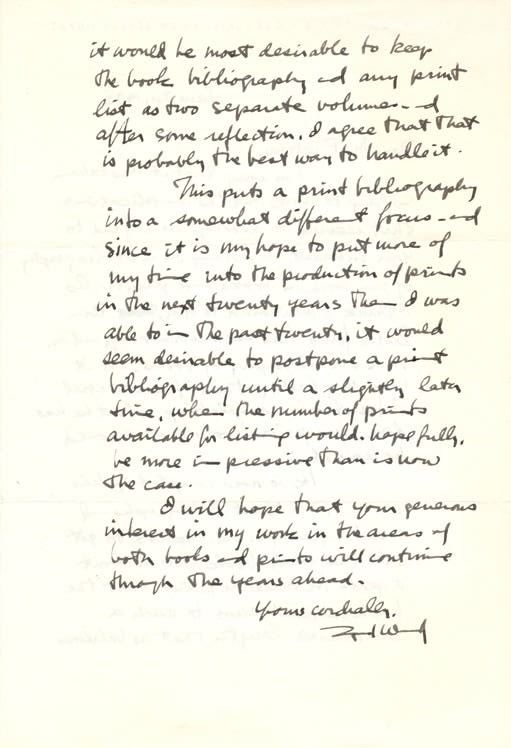 it would be most desirable to keep
the book bibliography and any print
list as two separate volumes and
after some reflection, I agree that that
is probably the best way to handle it.
This puts a print bibliography
into a somewhat different focus and
since it is my hope to put more of
my time into the production of prints
in the next twenty years than I was
able to in the past twenty, it would
seem desirable to postpone a print
bibliography until a slightly later
time, when the number of prints
available for listing would, hopefully,
be more impressive than is now
the case.
I will hope that your generous
interest in my work in the areas of
both books and prints will continue
through the years ahead.
Yours cordially,